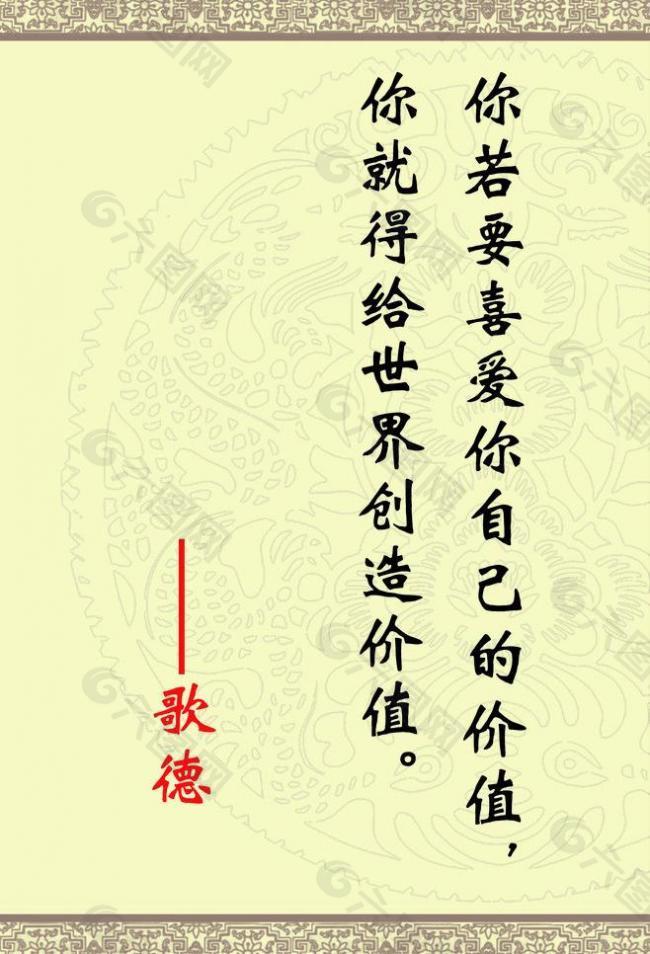 你若要喜爱你自己的价值，
你就得给世界创造价值。
——歌德
六图网